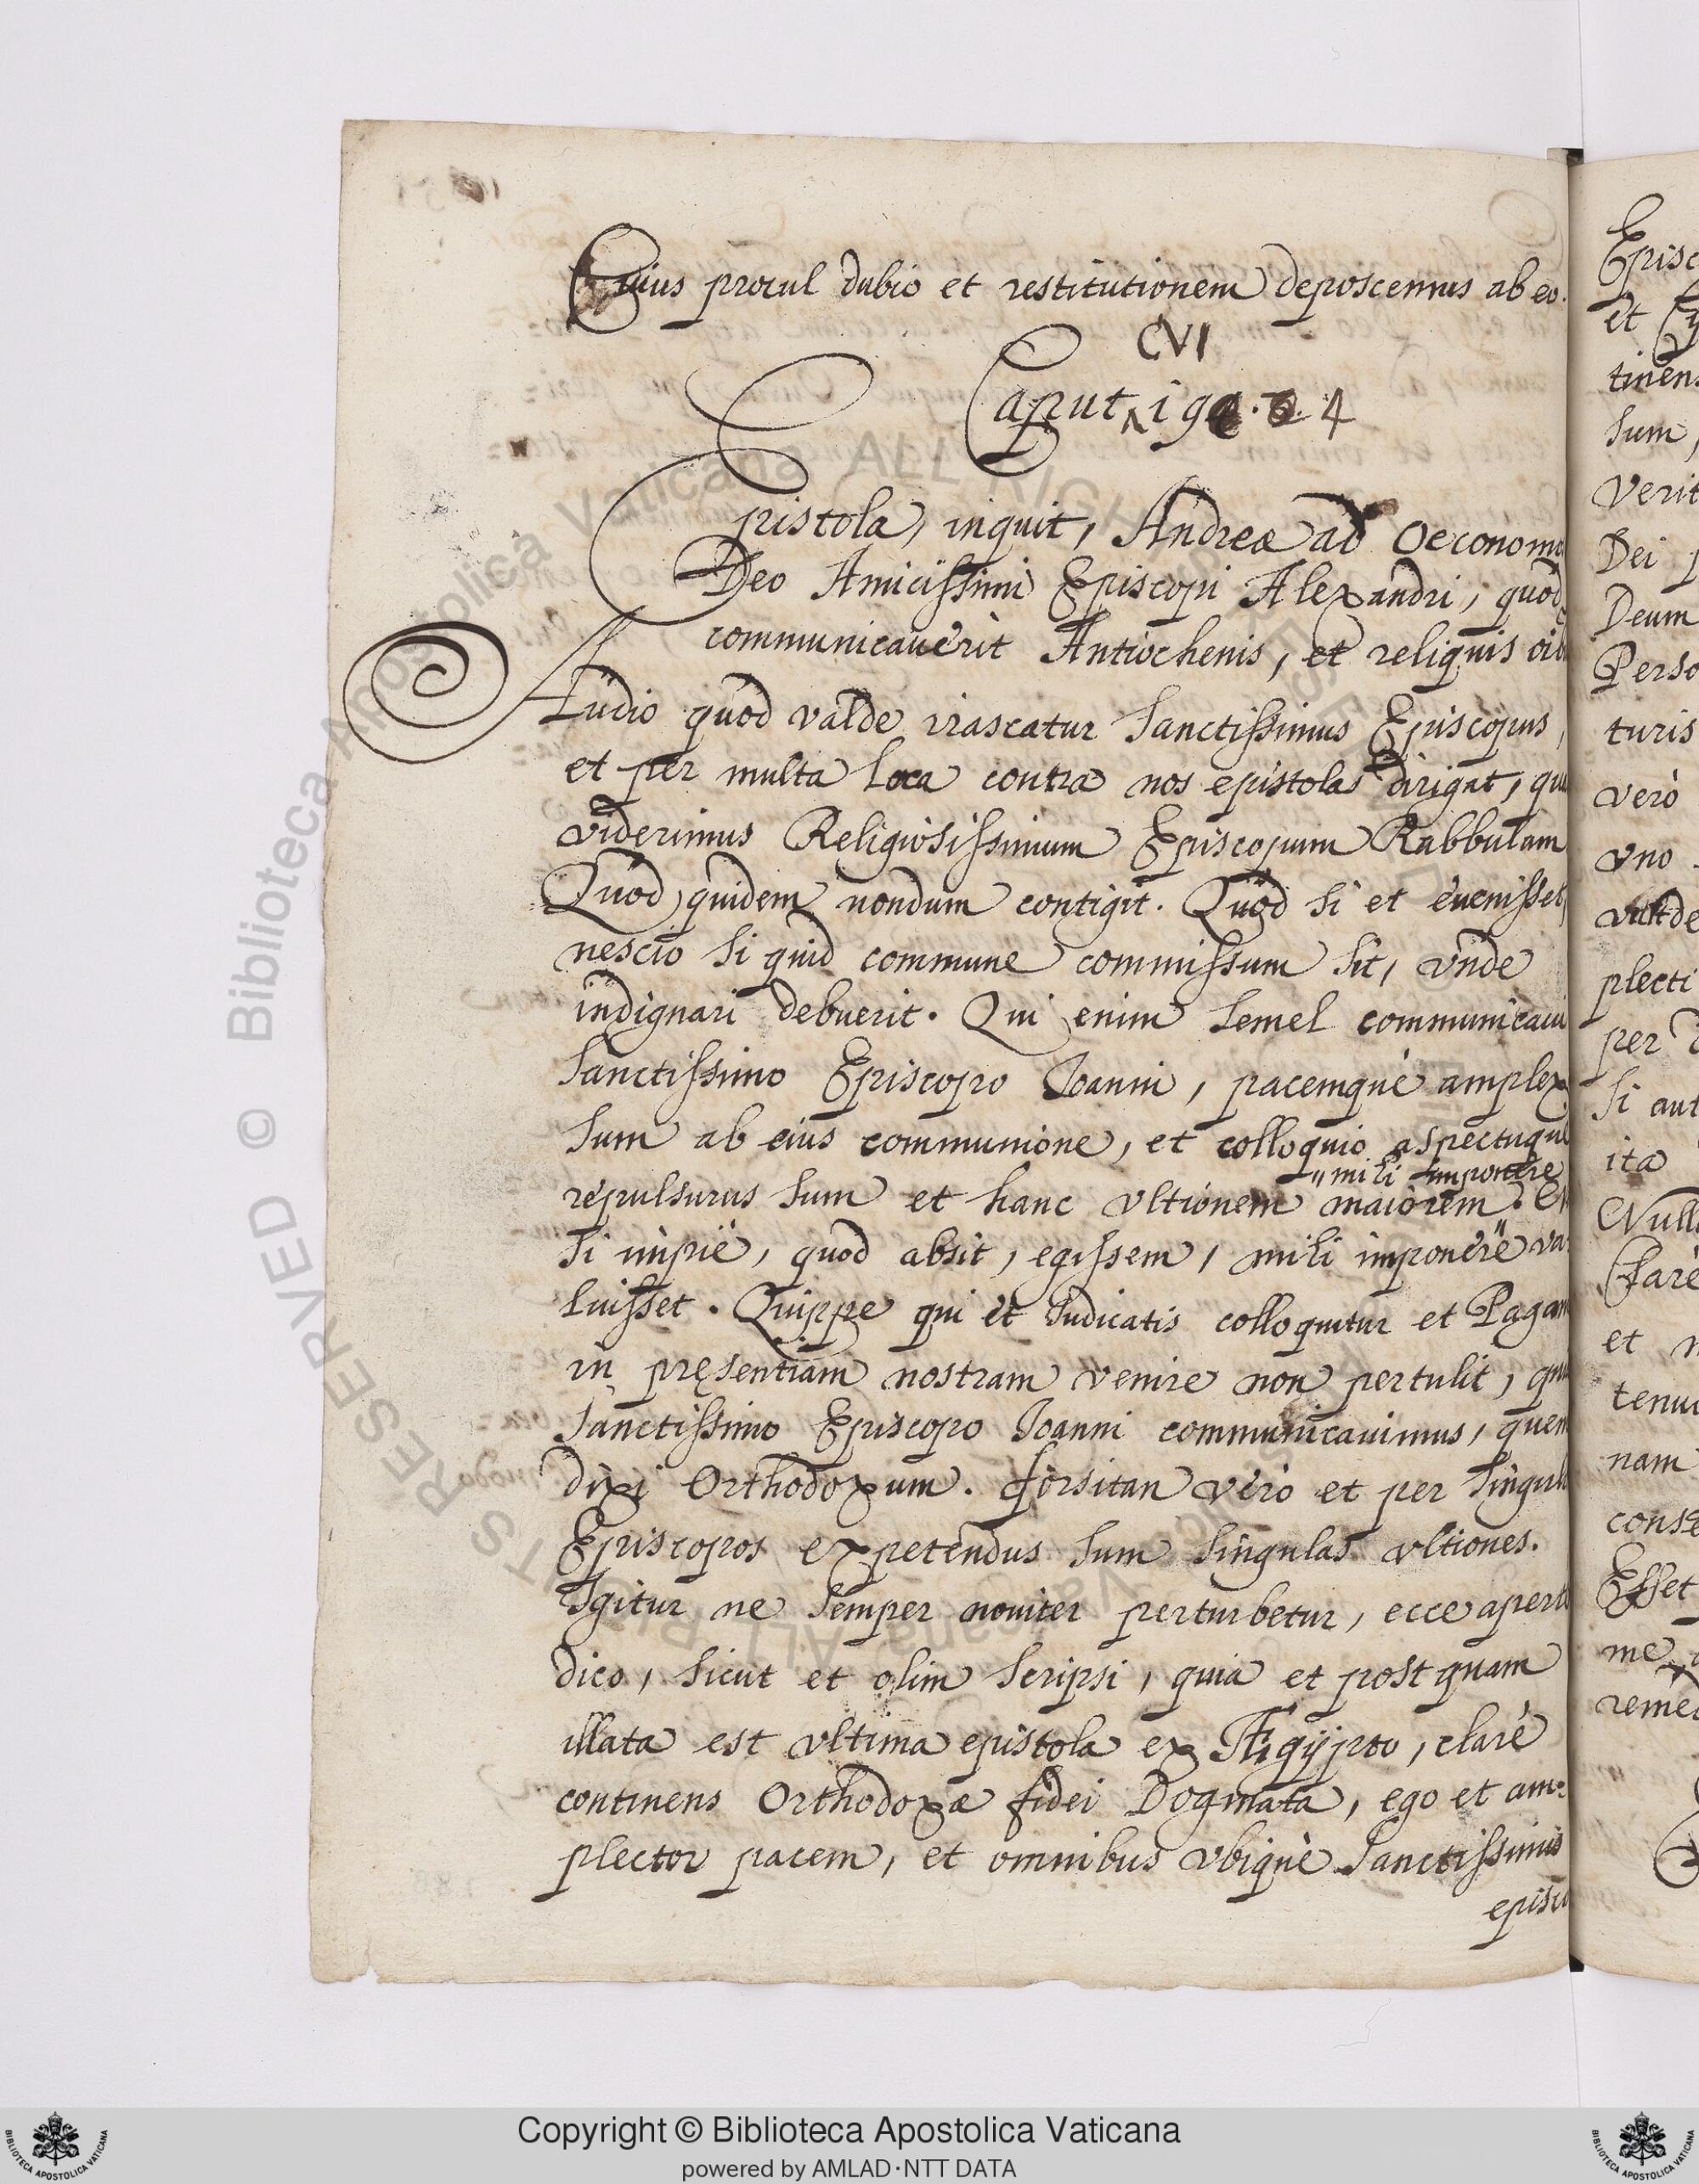 Cuius procul dubio et restitutionem deposcemus ab eo.
CVI
Caput 194
Epistola, inquit, Andreæ ad Oeconomo
Deo Amicissimi Episcopi Alexandri, quod
communicauerit Antiochenis, et reliquis oib
Audio quod valde irascatur Sanctissimus Episcopus,
et per multa loca contra nos epistolas dirigat, qu
viderimus Religiosissimum Episcopum Rabbulam
Quod quidem nondum contigit. Quod si et euenisset,
nescio si quid commune commissum sit, vnde
indignari debuerit. Qui enim semel communicaui
Sanctissimo Episcopo Ioanni, pacemquè amplex
sum ab eius communione, et colloquio aspectuque
" mihi imponere
repulsurus sum et hanc vltionem maiorem.
Si impiè, quod absit, egissem, mihi imponere" va
luisset. Quippe qui et Iudicatis colloquitur et Pagan
in pręsentiam nostram venire non pertulit, qui
Sanctissimo Episcopo Ioanni communicauimus, quem
dixi Orthodoxum. forsitan vero et per singul
Episcopos expetendus sum singulas vltiones.
Igitur ne semper nouiter perturbetur, ecce apert
dico, sicut et olim scripsi, quia et postquam
illata est vltima epistola ex Ægÿpto, clarè
continens Orthodoxæ fidei Dogmata, ego et am-
plector pacem, et omnibus vbiquè Sanctissimis
episco
Copyright © Biblioteca Apostolica Vaticana
powered by AMLAD·NTT DATA
Episc
et Cy
tinen
sum,
verit
Dei p
Deum
Perso
turis
verò
vno
valde
plecti
per
Si aut
ita
Null
stare
et n
tenu
nam
conse
Esset
me
reme